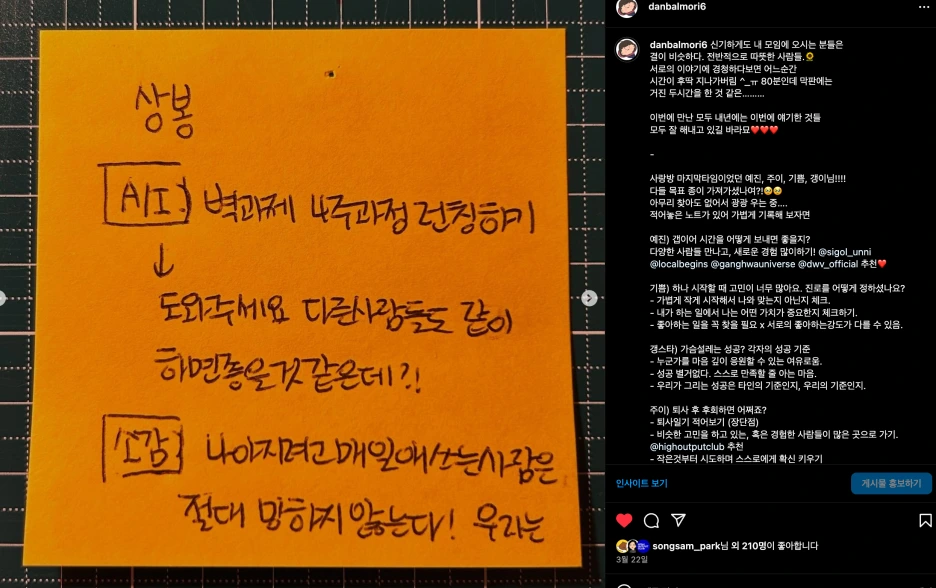 상봉
A/I.) 벽과제 4주과정 런칭하기
↓
도와주세요 다른사람들도 같이
하면좋을것같은데?!
소감 나아지려고매일애쓰는사람은
절대 망하지않는다! 우리는
danbalmori6
danbalmori6 신기하게도 내 모임에 오시는 분들은
결이 비슷하다. 전반적으로 따뜻한 사람들.🌻
서로의 이야기에 경청하다보면 어느순간
시간이 후딱 지나가버림 ^_ㅠ 80분인데 막판에는
거진 두시간을 한 것 같은.........
이번에 만난 모두 내년에는 이번에 얘기한 것들
모두 잘 해내고 있길 바라요❤️❤️❤️
-
사랑방 마지막타임이었던 예진, 주이, 기쁨, 갱이님!!!!
다들 목표 종이 가져가셨나여?!🥺🥺
아무리 찾아도 없어서 광광 우는 중....
적어놓은 노트가 있어 가볍게 기록해 보자면
예진) 갭이어 시간을 어떻게 보내면 좋을지?
다양한 사람들 만나고, 새로운 경험 많이하기! @sigol_unni
@localbegins @ganghwauniverse @dwv_official 추천❤️
기쁨) 하나 시작할 때 고민이 너무 많아요. 진로를 어떻게 정하셨나요?
- 가볍게 작게 시작해서 나와 맞는지 아닌지 체크.
- 내가 하는 일에서 나는 어떤 가치가 중요한지 체크하기.
- 좋아하는 일을 꼭 찾을 필요 x 서로의 좋아하는강도가 다를 수 있음.
갱스타) 가슴설레는 성공? 각자의 성공 기준
- 누군가를 마음 깊이 응원할 수 있는 여유로움.
- 성공 별거없다. 스스로 만족할 줄 아는 마음.
- 우리가 그리는 성공은 타인의 기준인지, 우리의 기준인지.
주이) 퇴사 후 후회하면 어쩌죠?
- 퇴사일기 적어보기 (장단점)
- 비슷한 고민을 하고 있는, 혹은 경험한 사람들이 많은 곳으로 가기.
@highoutputclub 추천
- 작은것부터 시도하며 스스로에게 확신 키우기
인사이트 보기
게시물 홍보하기
songsam_park님 외 210명이 좋아합니다
3월 22일